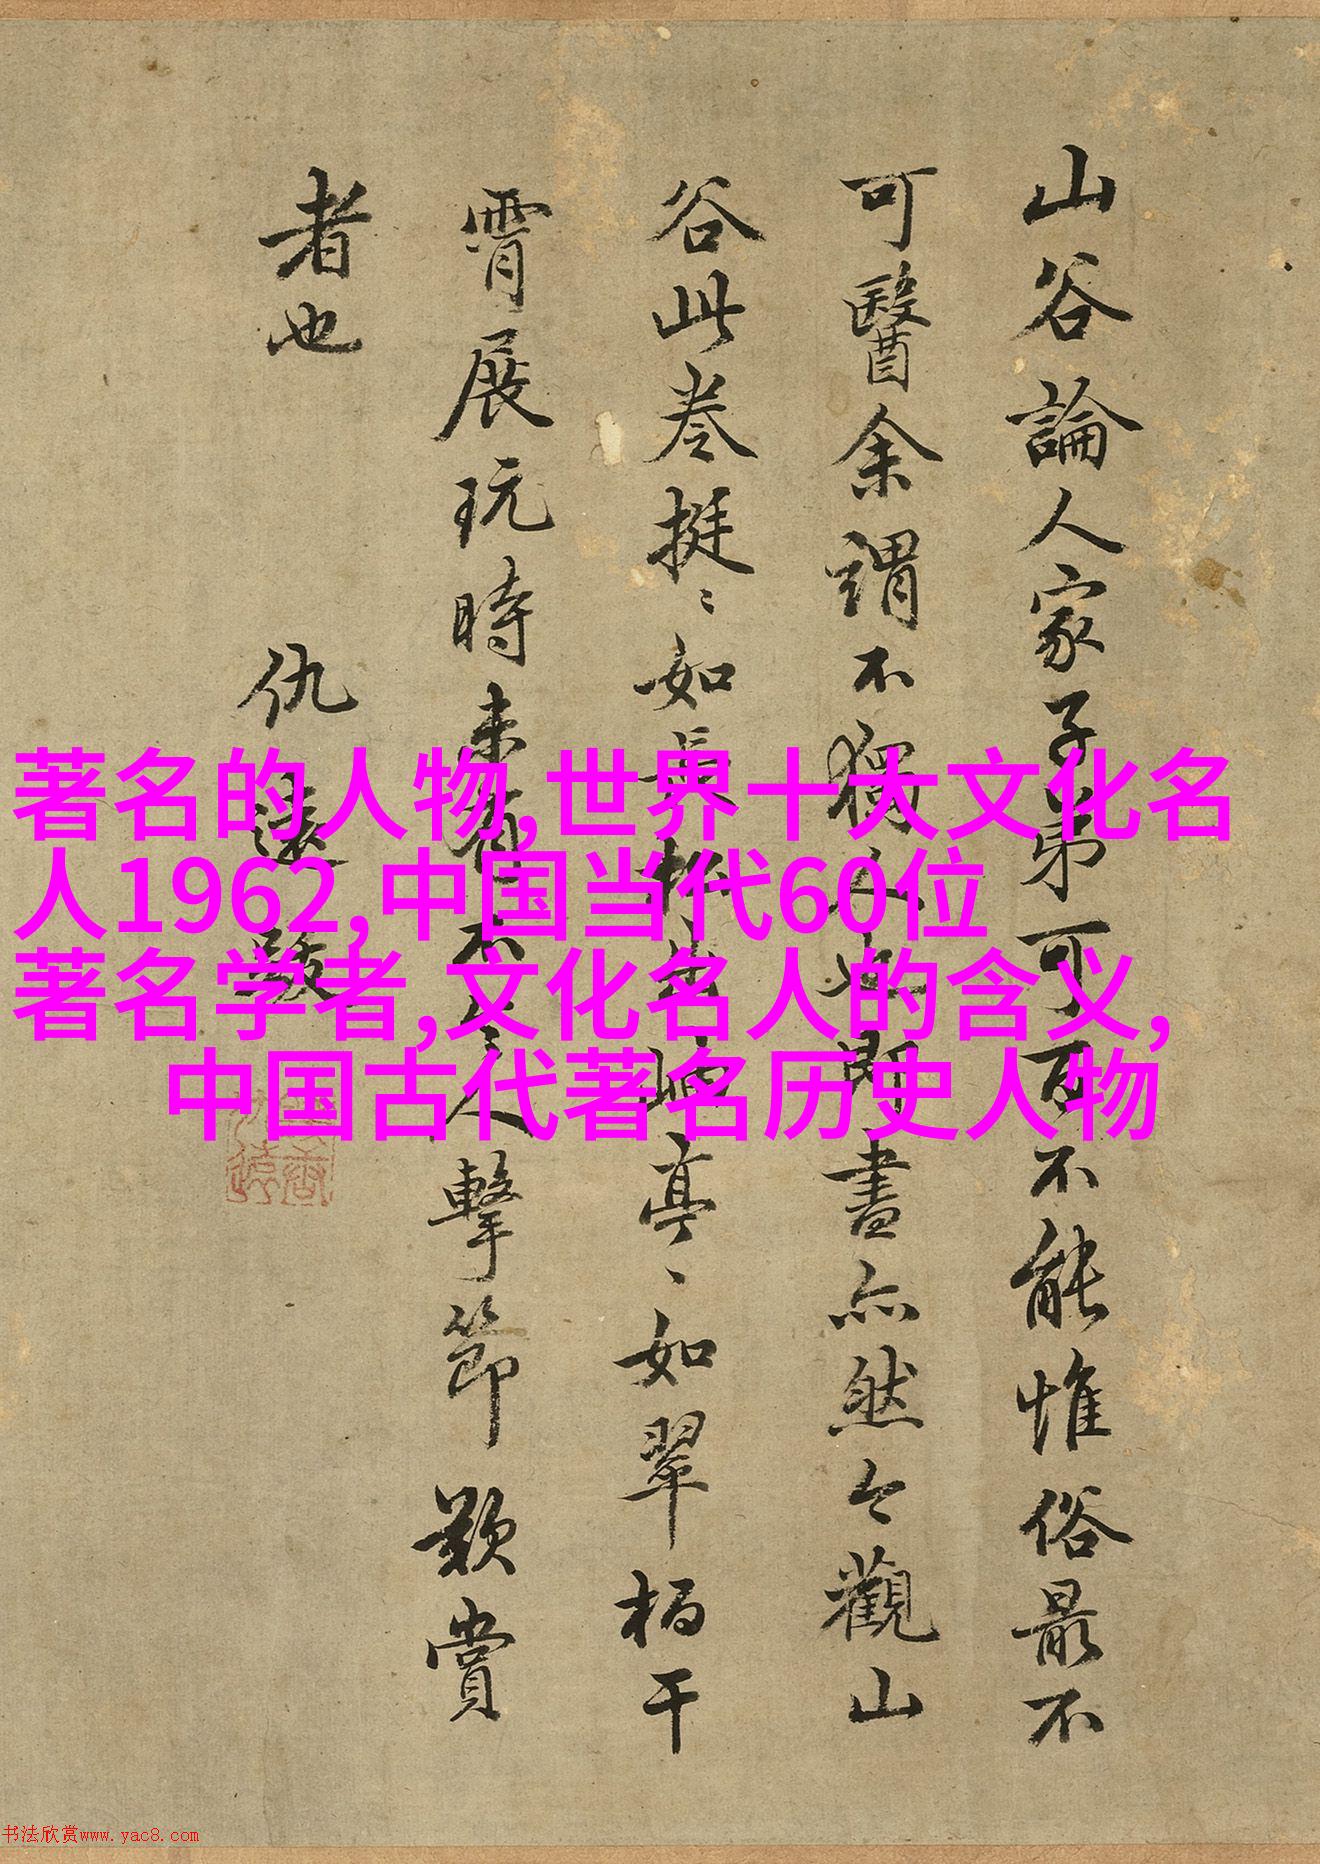 山谷論人家子弟可百不能惟俗最不
可醫余謂不獨人也即書亦然今觀山
谷此卷挺〻如長松出亭〻如翠柏干
霄展玩時未有不令人擊節歎賞
者也 仇遠題
著名的人物,世界十大文化名
人1962,中国当代60位
著名学者,文化名人的含义,
中国古代著名历史人物
书法欣赏www.yac8.com